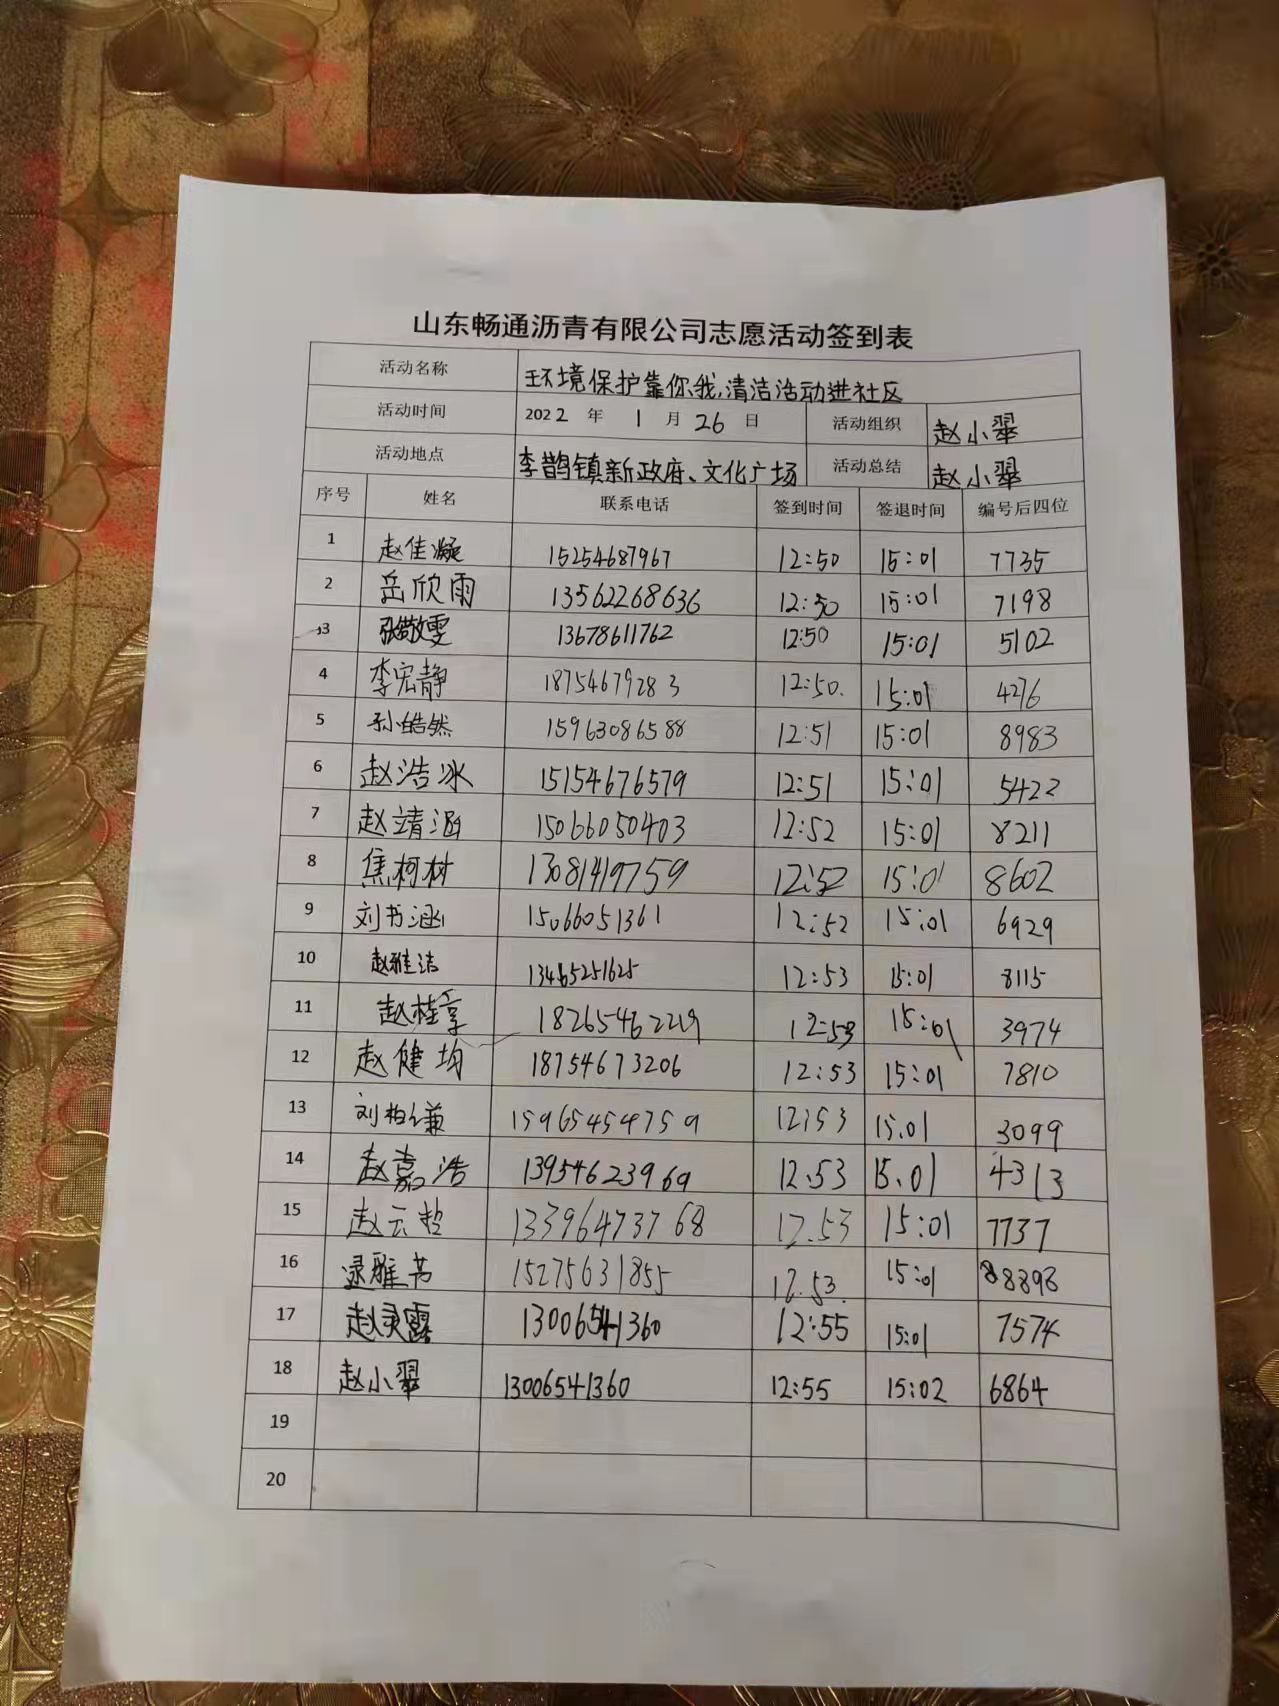 山东畅通沥青有限公司志愿活动签到表
活动名称 环境保护靠你我,清洁活动进社区
活动时间 2022 年 1 月 26 日 活动组织 赵小翠
活动地点 李鹊镇新政府、文化广场 活动总结 赵小翠
序号 姓名 联系电话 签到时间 签退时间 编号后四位
1 赵佳凝 15254687967 12:50 15:01 7735
2 岳欣雨 13562268636 12:50 15:01 7198
3 张敬雯 13678611762 12:50 15:01 5102
4 李宏静 18754679283 12:50. 15:01 4276
5 孙皓然 15963086588 12:51 15:01 8983
6 赵浩冰 15154676579 12:51 15:01 5422
7 赵靖涵 15066050403 12:52 15:01 8211
8 焦柯树 13081419759 12:52 15:01 8602
9 刘书涵 15066051361 12:52 15:01 6929
10 赵雅洁 13465251625 12:53 15:01 8115
11 赵桂享 18265462219 12:53 15:01 3974
12 赵健均 18754673206 12:53 15:01 7810
13 刘柏谦 15965454759 12:53 15.01 3099
14 赵嘉浩 13954623969 12.53 15.01 4313
15 赵云哲 13396473768 12.53 15:01 7737
16 逯雅芮 15275631855 12.53. 15:01 8898
17 赵灵露 13006541360 12:55 15:01 7574
18 赵小翠 13006541360 12:55 15:02 6864
19
20